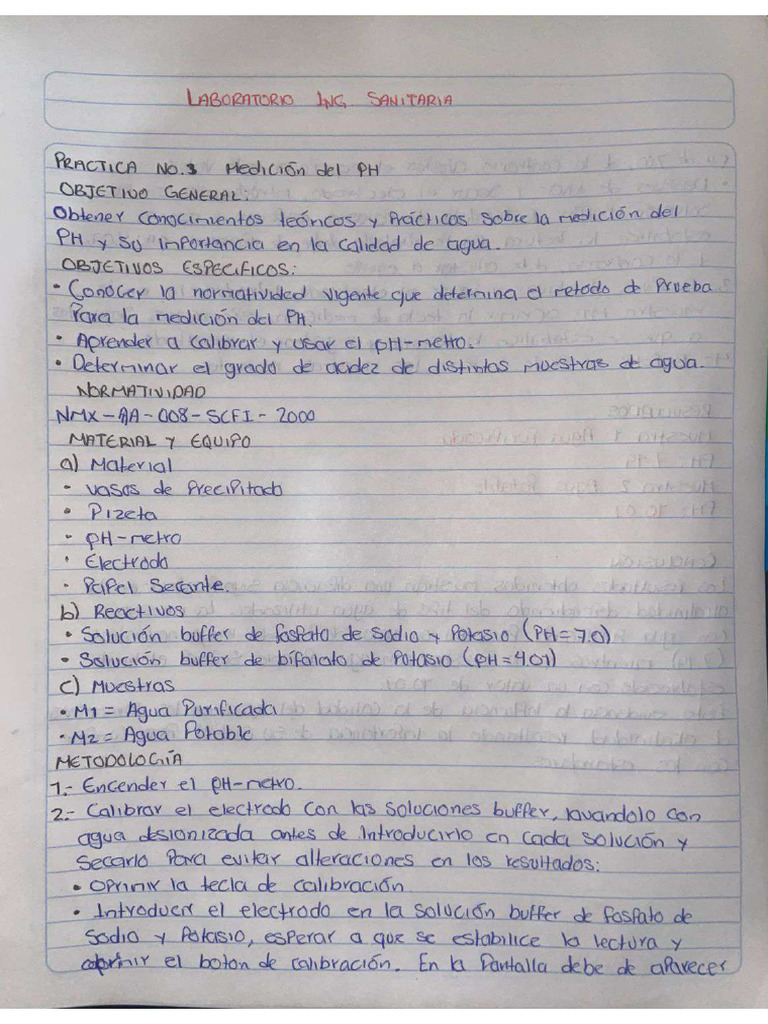 LABORATORIO ING. SANITARIA
PRACTICA NO.3 Medición del PH
OBJETIVO GENERAL:
Obtener conocimientos teóricos y Prácticos sobre la medición del
PH y su importancia en la calidad de agua.
OBJETIVOS ESPECIFICOS:
• Conocer la normatividad vigente que determina el metodo de Prueba
Para la medición del PH.
• Aprender a calibrar y usar el pH-metro.
• Determinar el grado de acidez de distintas muestras de agua.
NORMATIVIDAD
NMX-AA-008-SCFI-2000
MATERIAL Y EQUIPO
a) Material
- vasos de Precipitado
• Pizeta
- pH-metro
• Electrodo
- Papel Secante.
b) Reactivos
• Solución buffer de fosfato de sodio y Potasio (PH=7.0)
• Solución buffer de bifalato de Potasio (pH=4.01)
c) Muestras
• M1 = Agua Purificada
• M2 = Agua Potable
METODOLOGÍA
1.- Encender el pH-metro.
2.- Calibrar el electrodo con las soluciones buffer, lavandolo con
agua desionizada antes de Introducirlo en cada solución y
Secarlo Para evitar alteraciones en los resultados:
• Oprimir la tecla de calibración
• Introducir el electrodo en la solución buffer de fosfato de
sodio y Potasio, esperar a que se estabilice la lectura y
oprimir el boton de calibración. En la Pantalla debe de aparecer